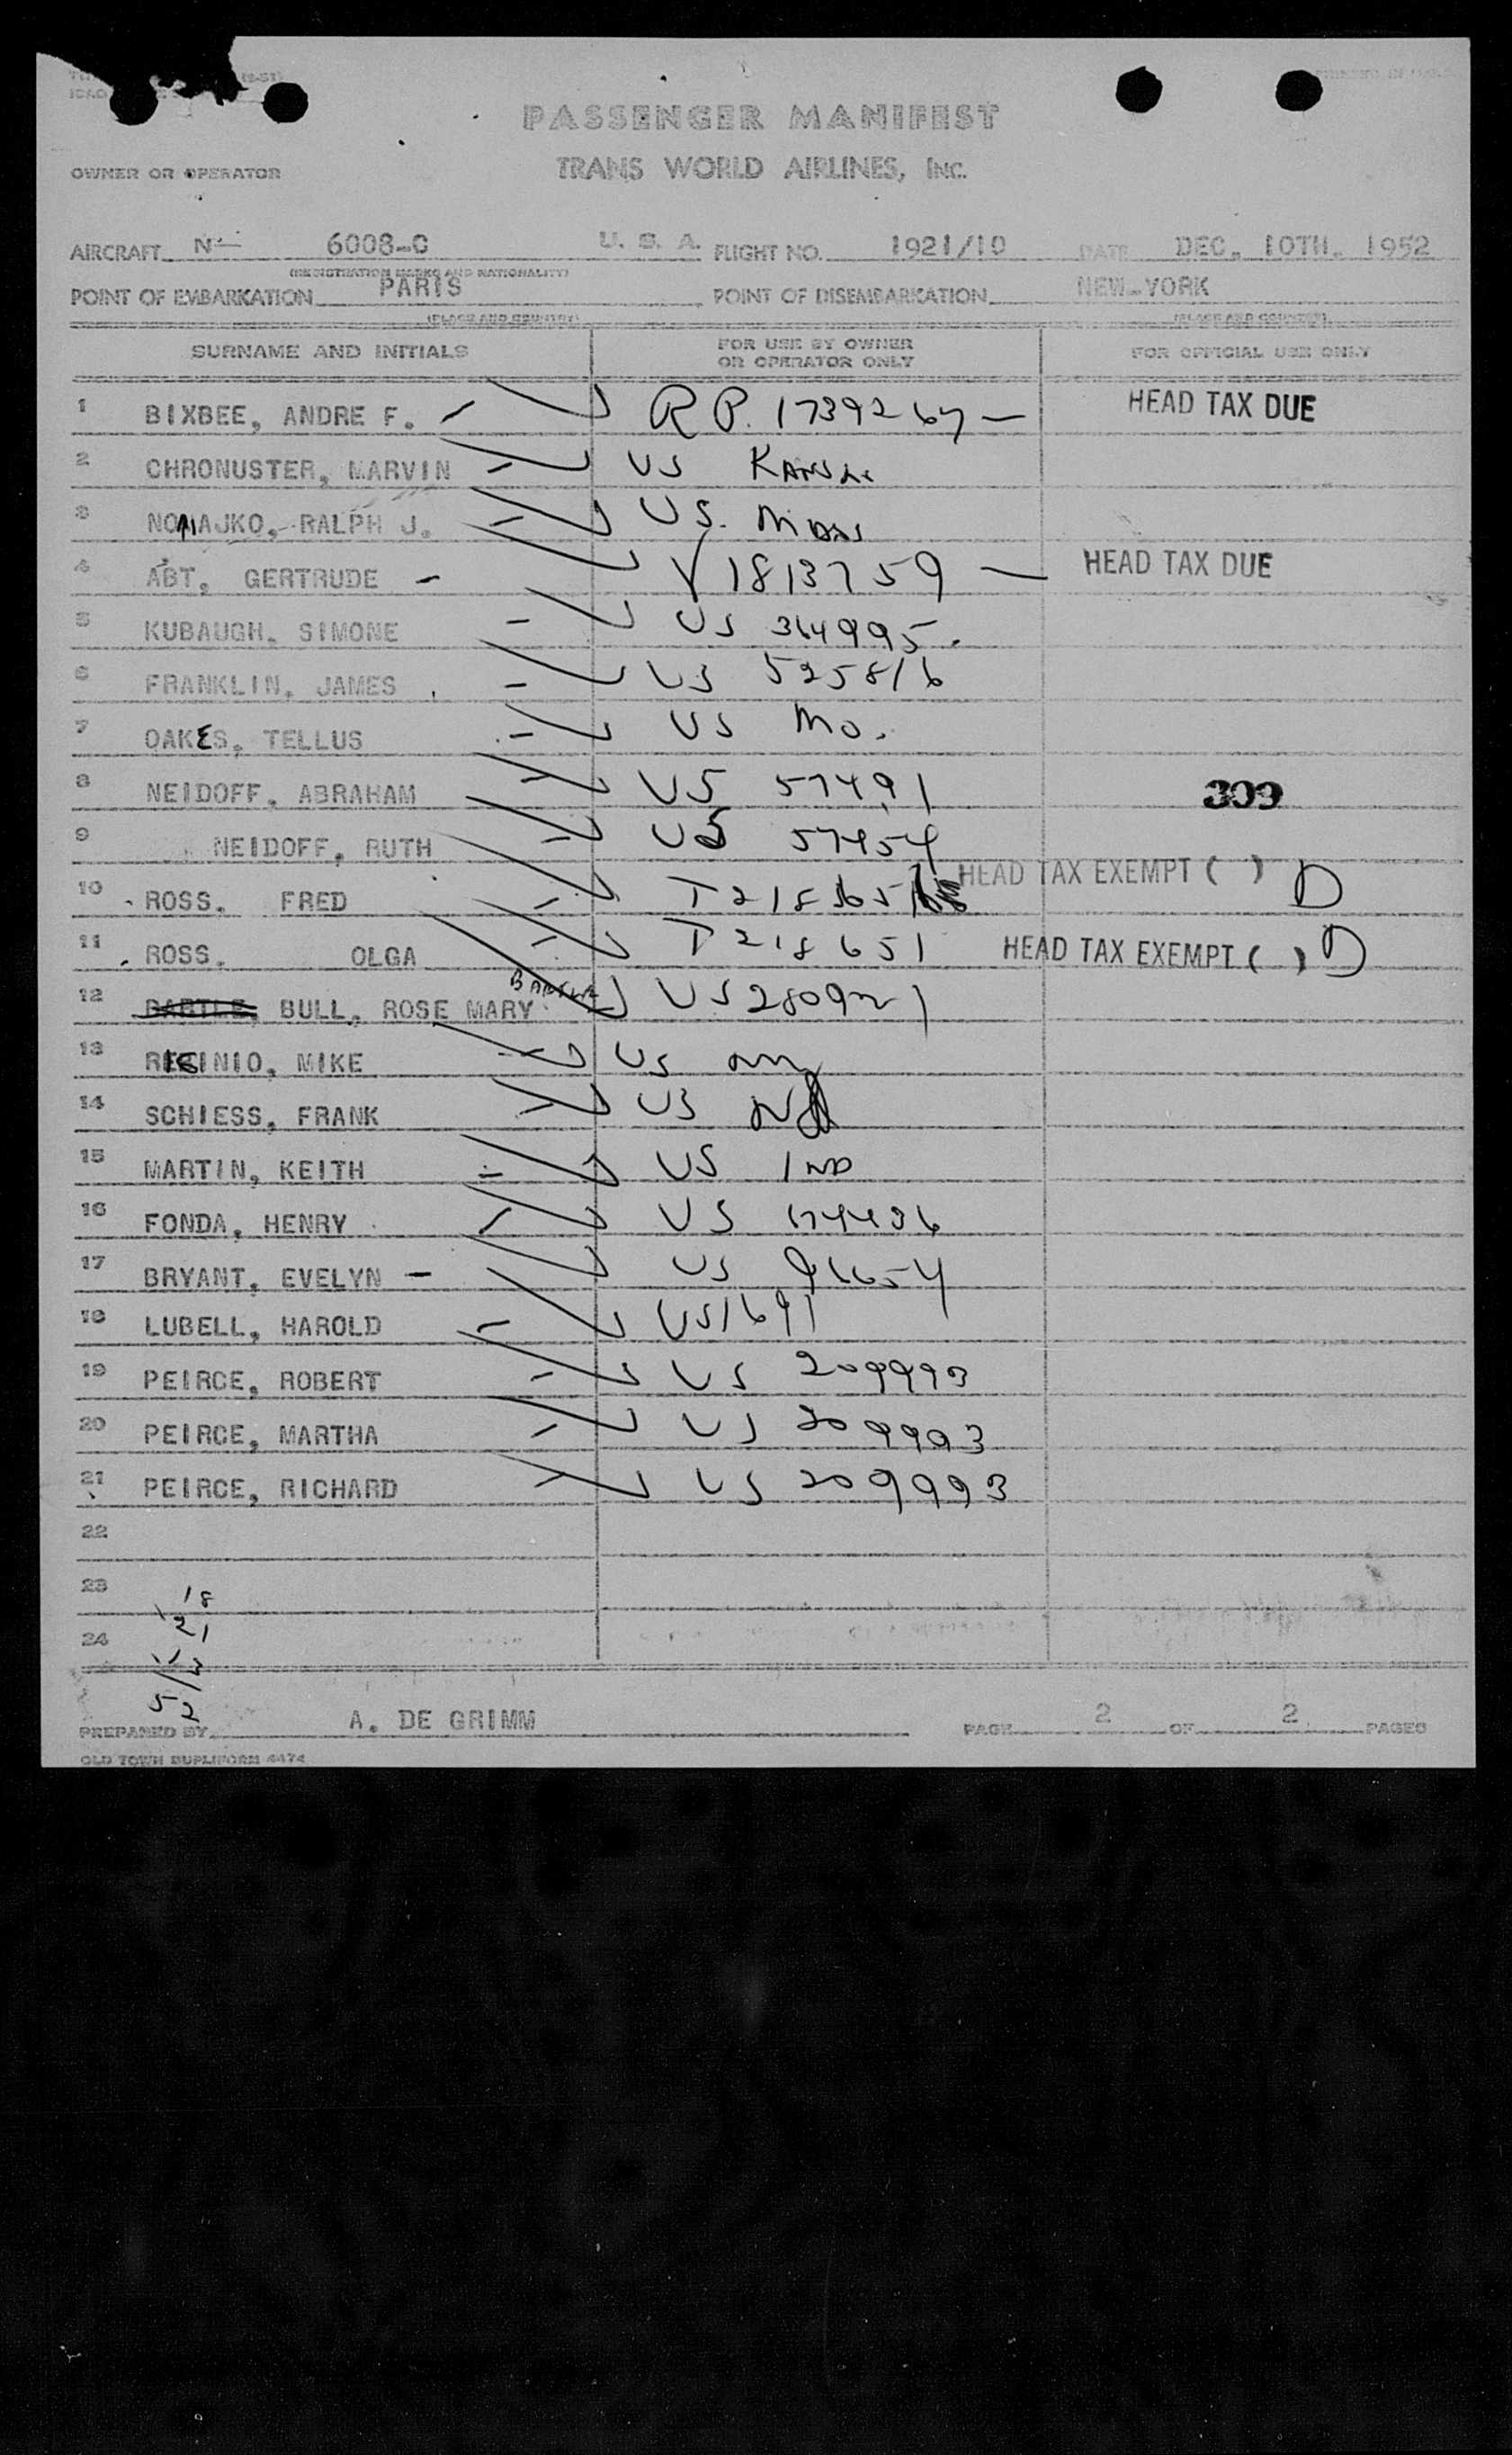 (9-51)
PRINTED IN U.S.A.
PASSENGER MANIFEST
OWNER OR OPERATOR TRANS WORLD AIRLINES, INC.
AIRCRAFT N 6008-C U. S. A. FLIGHT NO. 1921/10 DATE DEC. 10TH. 1952
(REGISTRATION MARKS AND NATIONALITY)
POINT OF EMBARKATION PARIS POINT OF DISEMBARKATION NEW-YORK
(PLACE AND COUNTRY) (PLACE AND COUNTRY)
SURNAME AND INITIALS FOR USE BY OWNER OR OPERATOR ONLY FOR OFFICIAL USE ONLY
1 BIXBEE, ANDRE F. R P. 1739267 HEAD TAX DUE
2 CHRONUSTER, MARVIN US
3 RALPH J. US.
4 ABT, GERTRUDE V 1813759 HEAD TAX DUE
5 KUBAUGH, SIMONE US 364995
6 FRANKLIN, JAMES US 525816
7 OAKES, TELLUS US Mo.
8 NEIDOFF, ABRAHAM US 57491 309
9 NEIDOFF, RUTH US 57454
10 ROSS. FRED HEAD TAX EXEMPT ( ) D
11 ROSS. OLGA T218651 HEAD TAX EXEMPT ( ) D
12 BARTLE, BULL, ROSE MARY BARTLE
13 MIKE US
14 SCHIESS, FRANK US
15 MARTIN, KEITH US IND
16 FONDA, HENRY US 174436
17 BRYANT, EVELYN US
18 LUBELL, HAROLD US 1691
19 PEIRCE, ROBERT US 209993
20 PEIRCE, MARTHA US 209993
21 PEIRCE, RICHARD US 209993
22
23 18
24 21
PREPARED BY A. DE GRIMM PAGE 2 OF 2 PAGES
OLD TOWN DUPLIFORM 4474